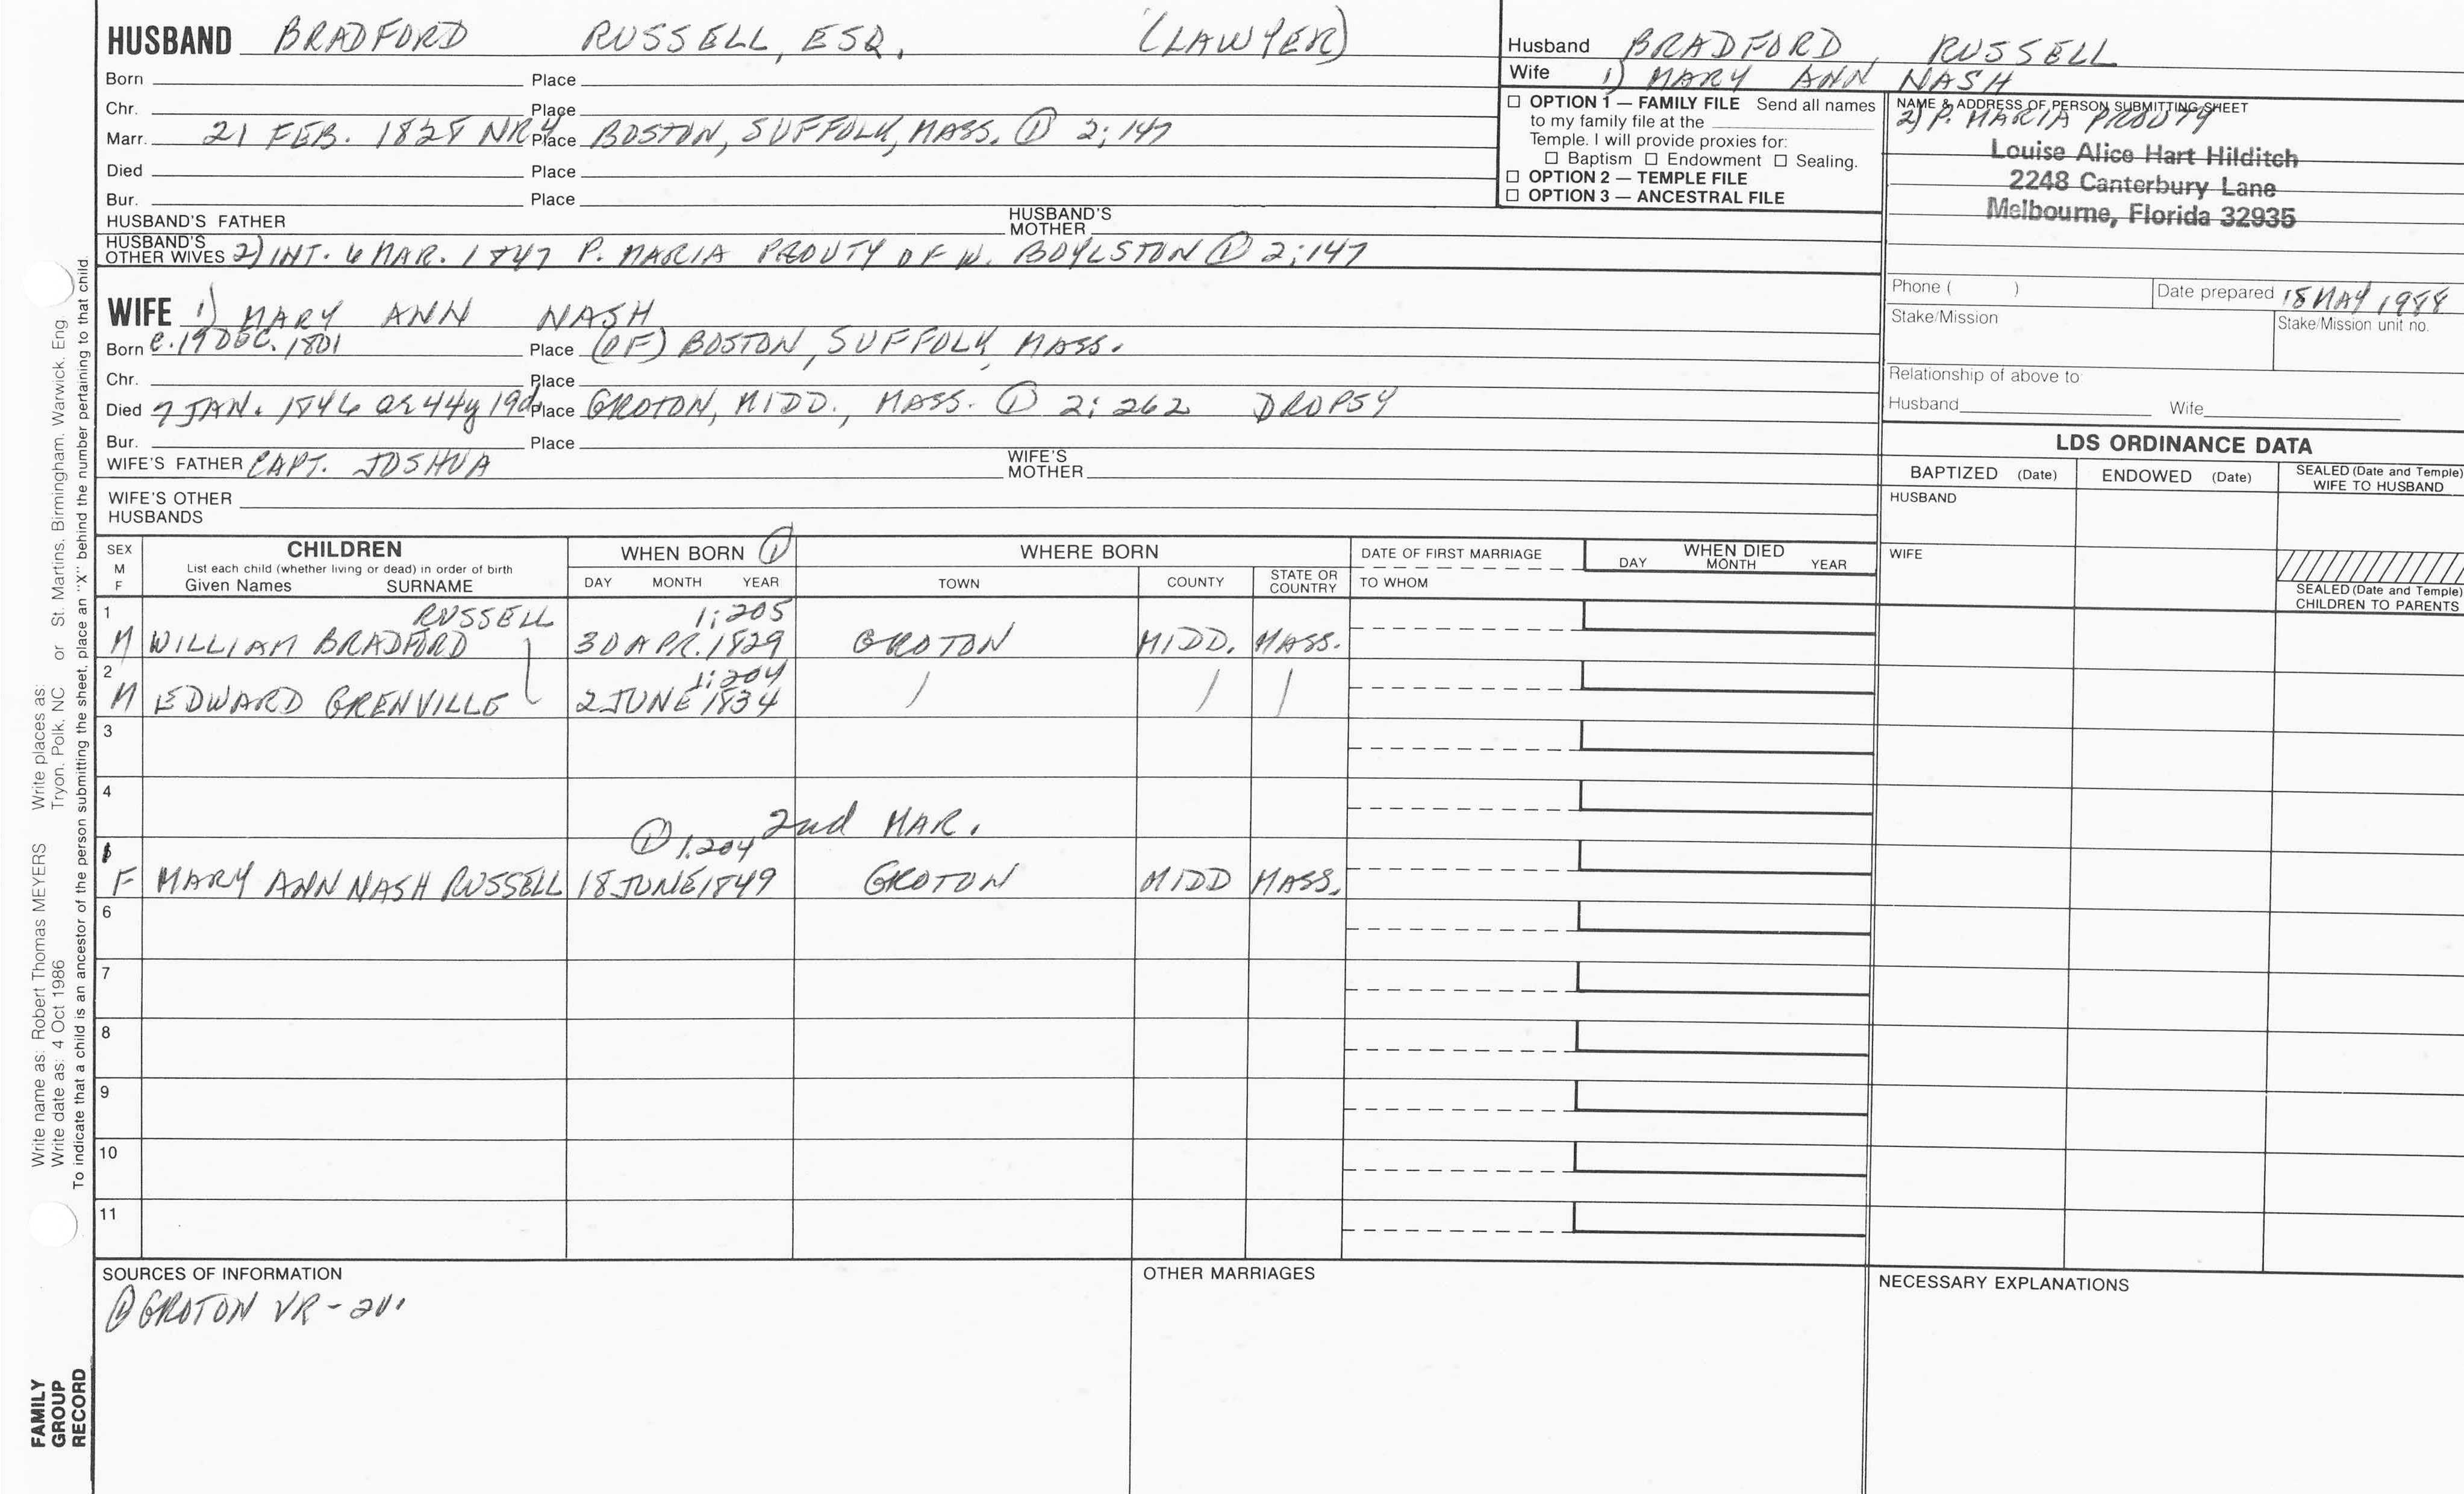 HUSBAND BRADFORD RUSSELL, ESQ. (LAWYER)
Born Place
Chr. Place
Marr. 21 FEB. 1828 NRY Place BOSTON, SUFFOLK, MASS. ① 2:147
Died Place
Bur. Place
HUSBAND'S FATHER HUSBAND'S MOTHER
HUSBAND'S OTHER WIVES 2) INT. 6 MAR. 1847 P. MARIA PROUTY OF W. BOYLSTON ① 2:147
WIFE 1) MARY ANN NASH
Born c. 19 DEC. 1801 Place (OF) BOSTON, SUFFOLK, MASS.
Chr. Place
Died 7 JAN. 1846 ae 44y 19d. Place GROTON, MIDD., MASS. ① 2:262 DROPSY
Bur. Place
WIFE'S FATHER CAPT. JOSHUA WIFE'S MOTHER
WIFE'S OTHER HUSBANDS
Husband BRADFORD RUSSELL
Wife 1) MARY ANN NASH
2) P. MARIA PROUTY
☐ OPTION 1 — FAMILY FILE Send all names
to my family file at the
Temple. I will provide proxies for:
☐ Baptism ☐ Endowment ☐ Sealing.
☐ OPTION 2 — TEMPLE FILE
☐ OPTION 3 — ANCESTRAL FILE
NAME & ADDRESS OF PERSON SUBMITTING SHEET
Louise Alice Hart Hilditch
2248 Canterbury Lane
Melbourne, Florida 32935
Phone ( ) Date prepared 18 MAY 1988
Stake/Mission Stake/Mission unit no.
Relationship of above to
Husband Wife
LDS ORDINANCE DATA
BAPTIZED (Date) ENDOWED (Date) SEALED (Date and Temple) WIFE TO HUSBAND
HUSBAND
WIFE
SEALED (Date and Temple) CHILDREN TO PARENTS
SEX M F
CHILDREN
List each child (whether living or dead) in order of birth
Given Names SURNAME
WHEN BORN ①
DAY MONTH YEAR
WHERE BORN
TOWN COUNTY STATE OR COUNTRY
DATE OF FIRST MARRIAGE
TO WHOM
WHEN DIED
DAY MONTH YEAR
1 RUSSELL 1:205
M WILLIAM BRADFORD 30 APR. 1829 GROTON MIDD. MASS.
2 1:204
M EDWARD GRENVILLE 2 JUNE 1834 / / /
3
4
2nd MAR.
① 1.204
F MARY ANN NASH RUSSELL 18 JUNE 1849 GROTON MIDD MASS.
6
7
8
9
10
11
SOURCES OF INFORMATION
① GROTON VR - 2V.
OTHER MARRIAGES
NECESSARY EXPLANATIONS
Write name as: Robert Thomas MEYERS Write places as: or St. Martins, Birmingham, Warwick, Eng.
Write date as: 4 Oct 1986 Tryon, Polk, NC
To indicate that a child is an ancestor of the person submitting the sheet, place an "X" behind the number pertaining to that child.
FAMILY
GROUP
RECORD